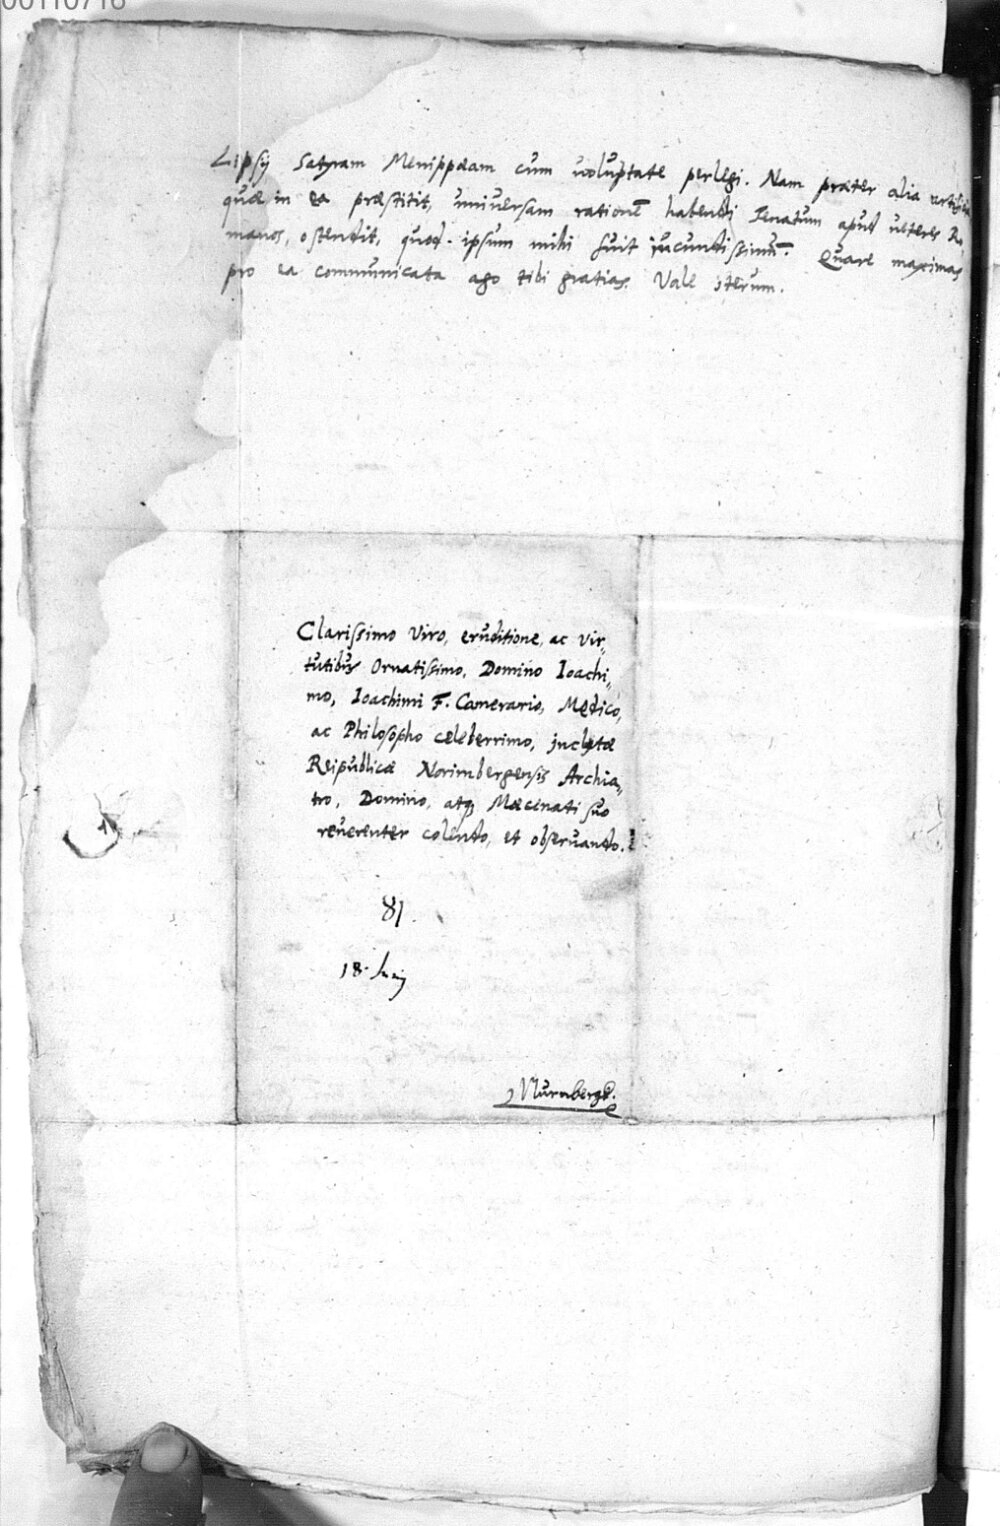 00110716
Lipsij Satyram Menippæam cum voluptate perlegi. Nam præter alia
quæ in ea præstitit, universam rationē habendi Senatum apud veteres Ro
manos, ostendit, quod ipsum mihi fuit iucundissimū. Quare maximas
pro ea communicata ago tibi gratias. Vale iterum.
Clarissimo Viro, eruditione, ac vir„
tutibus Ornatissimo, Domino Ioachi„
mo, Ioachimi F. Camerario, Medico,
ac Philosopho celeberrimo, inclytæ
Reipublicæ Norimbergensis Archia„
tro, Domino, atq; Mæcenati suo
reverenter colendo, et observando.
81.
18. Junij
Nurnbergk.